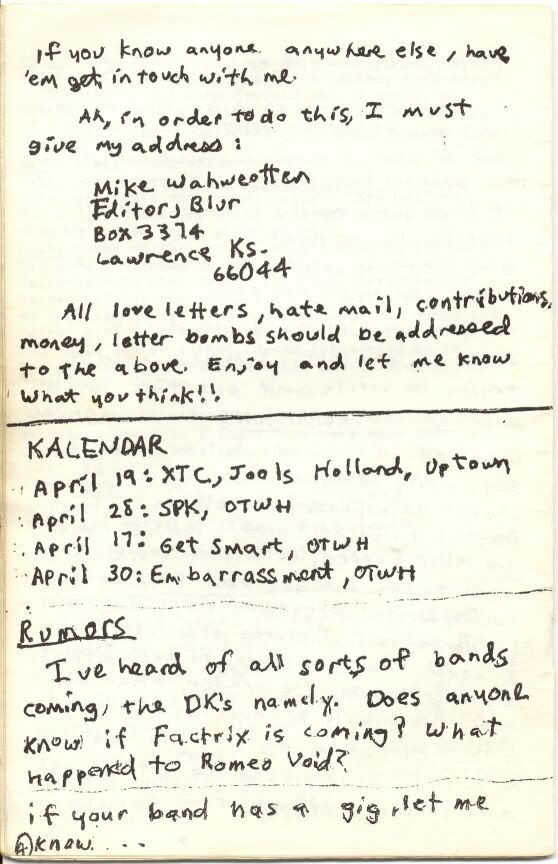 if you know anyone anywhere else, have
'em get in touch with me.
Ah, in order to do this, I must
give my address:
Mike Wahweotten
Editor, Blur
Box 3374
Lawrence Ks.
66044
All love letters, hate mail, contributions,
money, letter bombs should be addressed
to the above. Enjoy and let me know
what you think!!.
KALENDAR
April 19: XTC, Jools Holland, Uptown
April 28: SPK, OTWH
April 17: Get Smart, OTWH
April 30: Embarrassment, OTWH
Rumors
I've heard of all sorts of bands
coming, the DK's namely. Does anyone
know if Factrix is coming? What
happened to Romeo Void?
if your band has a gig, let me
know....